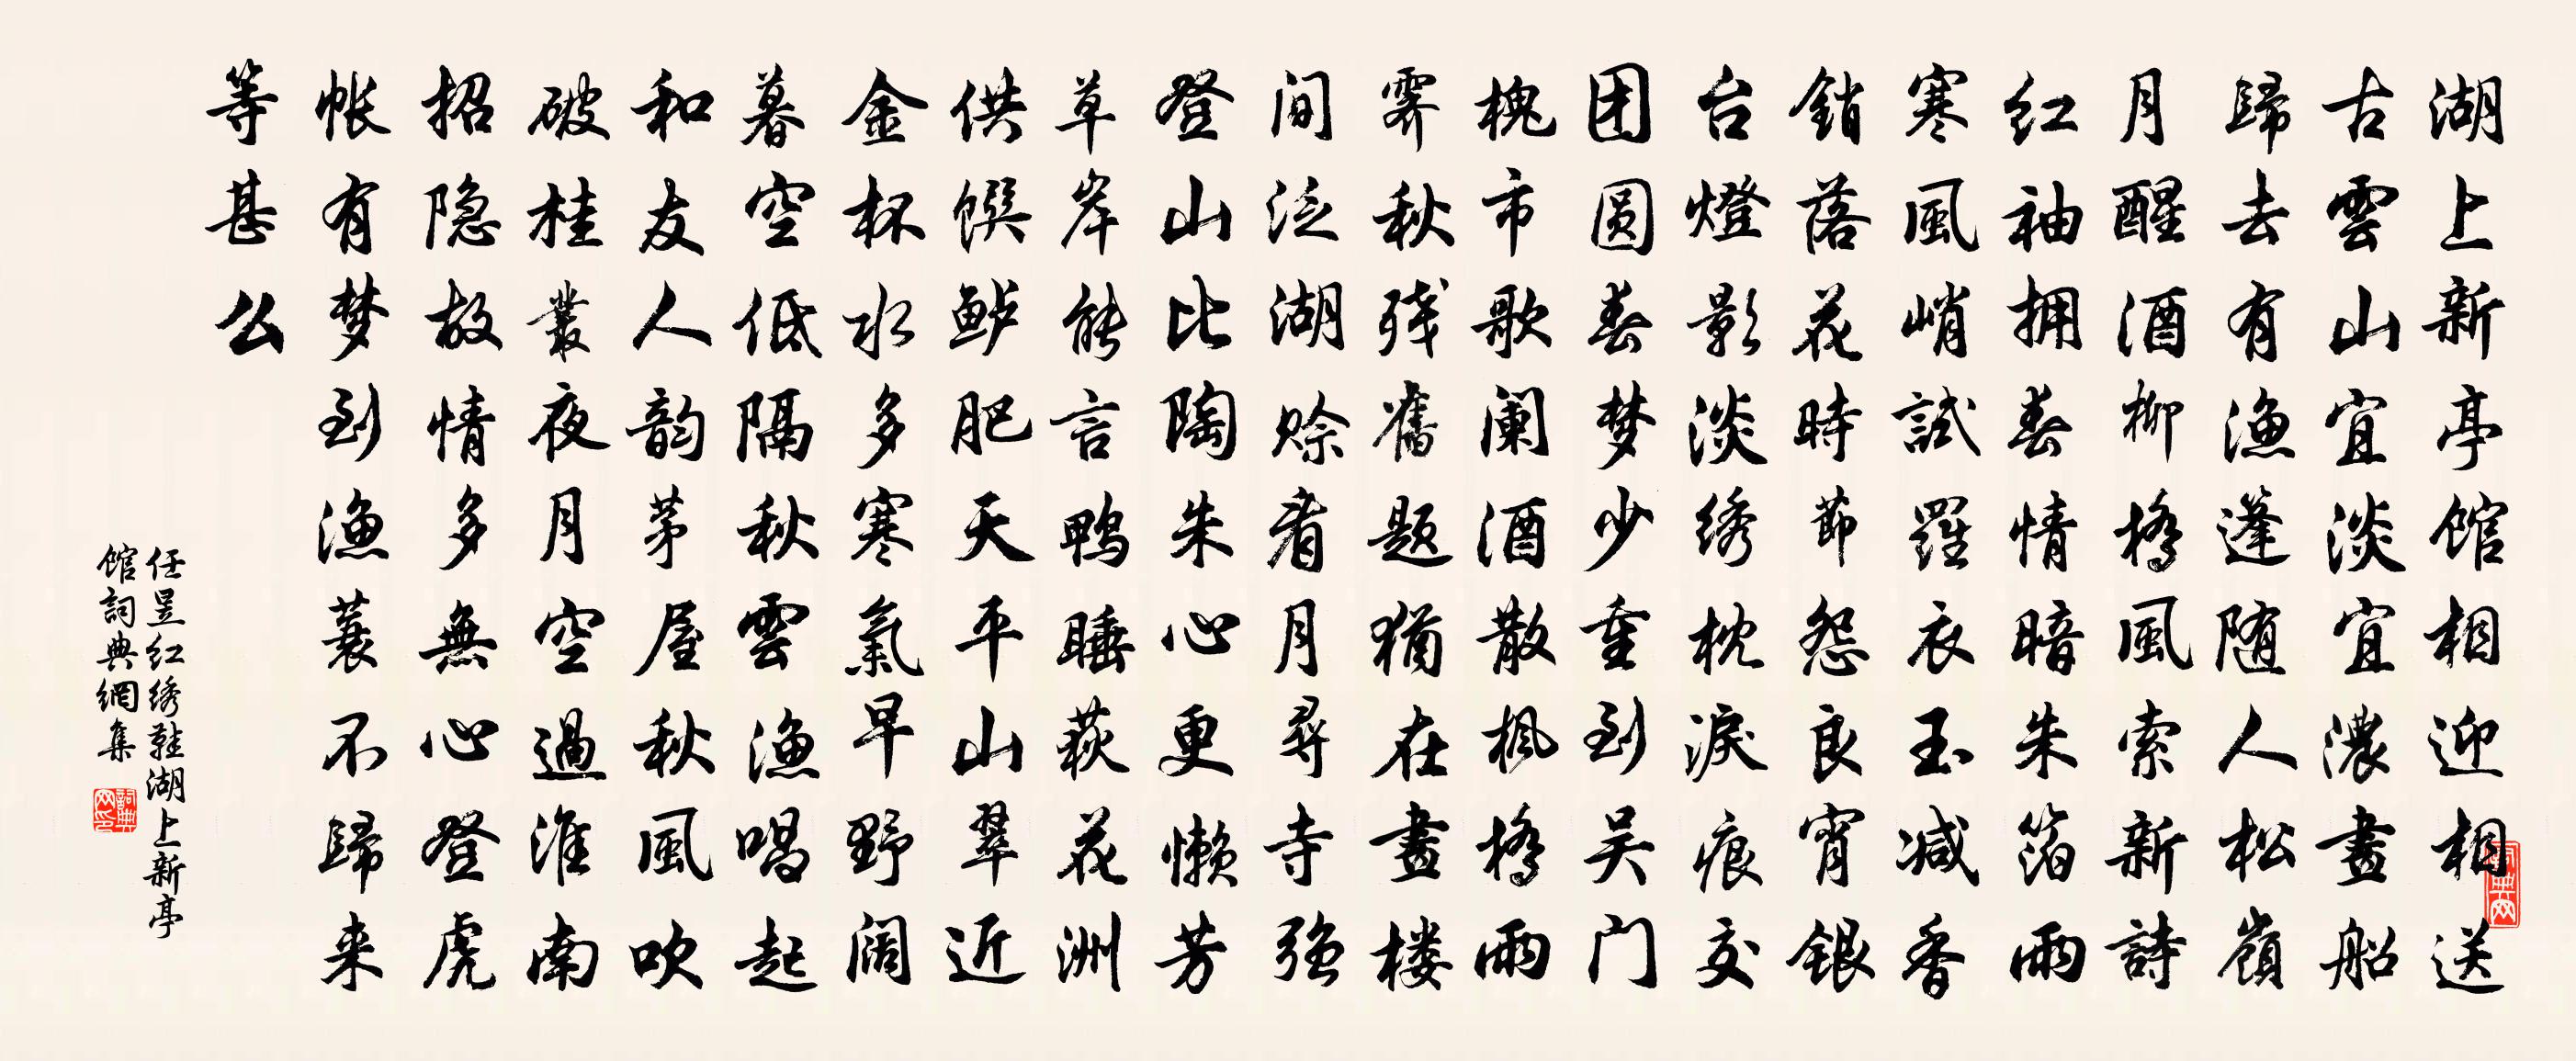 湖上新亭馆相迎相送
古雲山宜淡宜濃畫船
歸去有渔蓬随人松嶺
月醒酒柳橋風索新詩
红袖拥春情暗朱箔雨
寒風峭試羅衣玉减香
銷落花時節怨良宵銀
台燈影淡绣枕淚痕交
团圆春梦少重到吴门
槐市歌阑酒散枫橋雨
霁秋残舊题猶在畫楼
间泛湖赊看月尋寺强
登山比陶朱心更懒芳
草岸能言鸭睡萩花洲
供馔鲈肥天平山翠近
金杯水多寒氣早野阔
暮空低隔秋雲渔唱起
和友人韵茅屋秋風吹
破桂叢夜月空過淮南
招隐故情多無心登虎
帐有梦到渔蓑不歸来
等甚么
任昱红绣鞋湖上新亭
馆詞典網集
詞典网